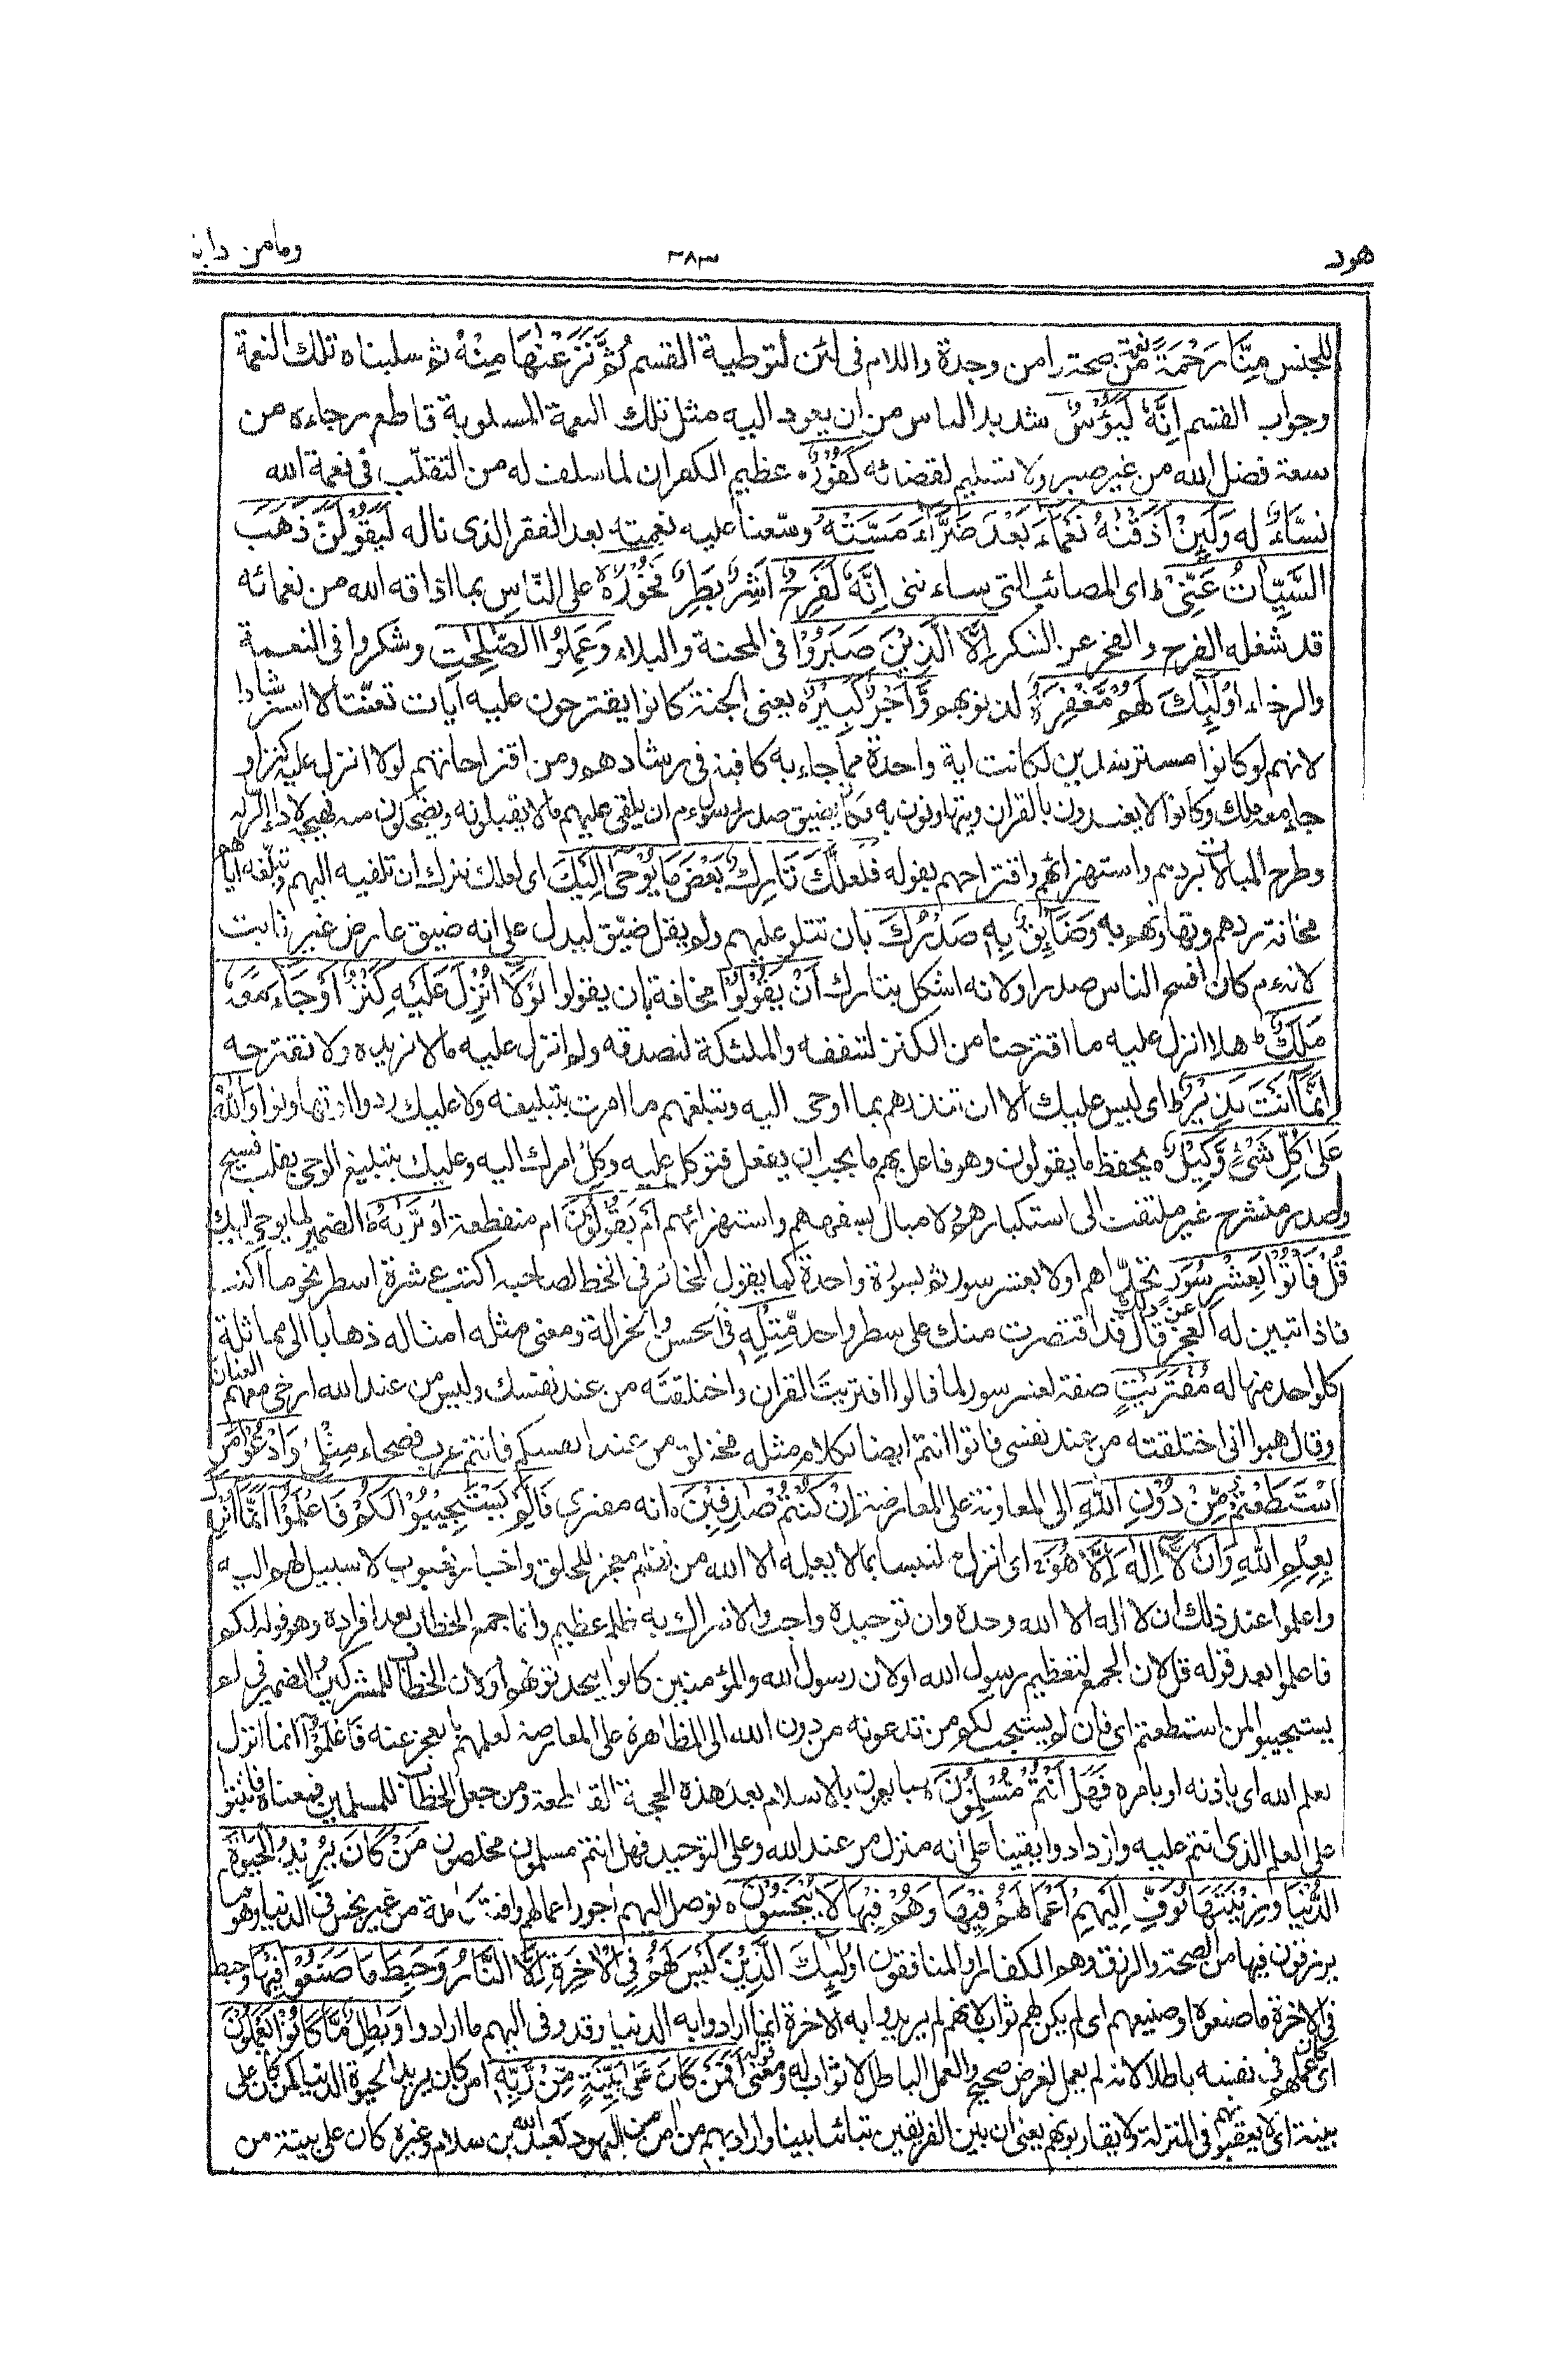 هود ٣٨٣ ومامن دابة
للجنس مِنَّا رَحْمَةً نعمة من صحة وامن وجدة واللام فى لئن لتوطية القسم ثُمَّ نَزَعْنٰهَا مِنْهُ ثم سلبناه تلك النعمة
وجواب القسم اِنَّهٗ لَيَؤُسٌ شديد الياس من ان يعود اليه مثل تلك النعمة المسلوبة قاطع رجاءه من
سعة فضل الله من غير صبر ولا تسليم لقضائه كَفُوْرٌ ه عظيم الكفران لما سلف له من التقلب فى نعمة الله
نسّاءٌ له وَلَئِنْ اَذَقْنٰهُ نَعْمَاءَ بَعْدَ ضَرَّاءَ مَسَّتْهُ وسّعنا عليه نعمته بعد الفقر الذى ناله لَيَقُوْلَنَّ ذَهَبَ
السَّيِّاٰتُ عَنِّىْ ط اى المصائب التى ساءتنى اِنَّهٗ لَفَرِحٌ اشر بطر فَخُوْرٌ ه على النّاس بما اذاقه الله من نعمائه
قد شغله الفرح والفخر عن الشكر اِلَّا الَّذِيْنَ صَبَرُوْا فى المحنة والبلاء وَعَمِلُوا الصّٰلِحٰتِ وشكروا فى النعمة
والرخاء اُولٰئِكَ لَهُمْ مَّغْفِرَةٌ لذنوبهم وَّاَجْرٌ كَبِيْرٌ ه يعنى الجنة كانوا يقترحون عليه ايات تعنتا لا استرشادا
لانهم لو كانوا مسترشدين لكانت اية واحدة مما جاء به كافية فى رشادهم ومن اقتراحاتهم لولا انزل عليه كنز او
جاء معه ملك وكانوا لا يعتدون بالقران ويتهاونون به فكان يضيق صدر رسول الله ان يلقى عليهم ما لا يقبلونه ويضحكون منه فهيجه لاداء الرسالة
وطرح المبالاة بردهم واستهزائهم واقتراحهم بقوله فَلَعَلَّكَ تَارِكٌ بَعْضَ مَا يُوْحٰى اِلَيْكَ اى لعلك تترك ان تلقيه اليهم وتبلغه اياهم
مخافة ردهم وتهاونهم به وَضَائِقٌ بِهٖ صَدْرُكَ بان تتلوه عليهم ولم يقل ضيّق ليدل على انه ضيق عارض غير ثابت
لانه كان افسح الناس صدرا ولانه اشكل بتارك اَنْ يَقُوْلُوْا مخافة بان يقولوا لَوْلَا اُنْزِلَ عَلَيْهِ كَنْزٌ اَوْ جَاءَ مَعَهٗ
مَلَكٌ ط هلا انزل عليه ما اقترحنا من الكنز لننفقه والملئكة لنصدقه ولم انزل عليه ما لا نريده ولا نقترحه
اِنَّمَا اَنْتَ نَذِيْرٌ ط اى ليس عليك الا ان تنذرهم بما اوحى اليه وتبلغهم ما امرت بتبليغه ولا عليك ردوا او تهاونوا وَاللّٰهُ
عَلٰى كُلِّ شَىْءٍ وَّكِيْلٌ ه يحفظ ما يقولون وهو فاعل بهم ما يجب ان يفعل فتوكل عليه وكل امرك اليه وعليك بتبليغ الوحى بقلب فسيح
وصدر منشرح غير ملتفت الى استكبارهم ولا مبال بسفههم واستهزائهم اَمْ يَقُوْلُوْنَ ام منقطعة افْتَرٰىهُ ط الضمير لما يوحى اليك
قُلْ فَاْتُوْا بِعَشْرِ سُوَرٍ تحداهم اولا بعشر سور ثم بسورة واحدة كما يقول المخائر فى الخط لصاحبه اكتب عشرة اسطر نحو ما اكتب
فاذا تبين له العجز عن ذلك قال قد اقتصرت منك على سطر واحد مِّثْلِهٖ فى الحسن والجزالة ومعنى مثله امثاله ذهابا الى مماثلة
كل واحد منها له مُفْتَرَيٰتٍ صفة لعشر سور لما قالوا افتريت القران واختلقته من عند نفسك وليس من عند الله ارخى معهم العنان
وقال هبوا انى اختلقته من عند نفسى فاتوا انتم ايضا بكلام مثله مختلق من عند انفسكم فانتم عرب فصحاء مثلى وَادْعُوْا مَنِ
اسْتَطَعْتُمْ مِّنْ دُوْنِ اللّٰهِ الى المعاونة على المعارضة اِنْ كُنْتُمْ صٰدِقِيْنَ ه انه مفترى فَاِلَّمْ يَسْتَجِيْبُوْا لَكُمْ فَاعْلَمُوْا اَنَّمَا اُنْزِلَ
بِعِلْمِ اللّٰهِ وَاَنْ لَّا اِلٰهَ اِلَّا هُوَ اى انزل ملتبسا بما لا يعلمه الا الله من نظم معجز للخلق واخبار بغيوب لا سبيل لهم اليه
واعلموا عند ذلك ان لا اله الا الله وحده وان توحيده واجب والاشراك به ظلم عظيم وانما جمع الخطاب بعد افراده وهو قوله لكم
فاعلموا بعد قوله قل لان الجمع لتعظيم رسول الله او لان رسول الله والمؤمنين كانوا يتحدونهم او لان الخطاب للمشركين والضمير فى لم
يستجيبوا لمن استطعتم اى فان لم يستجب لكم من تدعونه من دون الله الى المظاهرة على المعارضة لعلمهم بالعجز عنه فَاعْلَمُوْا انما انزل
بعلم الله اى باذنه او بامره فَهَلْ اَنْتُمْ مُّسْلِمُوْنَ ه متابعون بالاسلام بعد هذه الحجة القاطعة ومن جعل الخطاب للمسلمين فمعناه فاثبتوا
على العلم الذى انتم عليه وازدادوا يقينا على انه منزل من عند الله وعلى التوحيد فهل انتم مسلمون مخلصون مَنْ كَانَ يُرِيْدُ الْحَيٰوةَ
الدُّنْيَا وَزِيْنَتَهَا نُوَفِّ اِلَيْهِمْ اَعْمَالَهُمْ فِيْهَا وَهُمْ فِيْهَا لَا يُبْخَسُوْنَ ه نوصل اليهم اجور اعمالهم وافية كاملة من غير بخس فى الدنيا وهو ما
يرزقون فيها من الصحة والرزق وهم الكفار او المنافقون اُولٰئِكَ الَّذِيْنَ لَيْسَ لَهُمْ فِى الْاٰخِرَةِ اِلَّا النَّارُ وَحَبِطَ مَا صَنَعُوْا فِيْهَا وحبط
فى الاخرة ما صنعوه او صنيعهم اى لم يكن لهم ثواب لانهم لم يريدوا به الاخرة انما ارادوا به الدنيا وقد وفى اليهم ما ارادوا وَبٰطِلٌ مَّا كَانُوْا يَعْمَلُوْنَ
اى كان عملهم فى نفسه باطلا لانه لم يعمل لغرض صحيح والعمل الباطل لا ثواب له ومعنى قوله اَفَمَنْ كَانَ عَلٰى بَيِّنَةٍ مِّنْ رَّبِّهٖ امن كان يريد الحيوة الدنيا كمن كان على
بينة اى لا يعقبونهم فى المنزلة ولا يقاربونهم يعنى ان بين الفريقين تباينا بينا واراد بهم من امن من اليهود كعبد الله بن سلام وغيره كان على بينة من